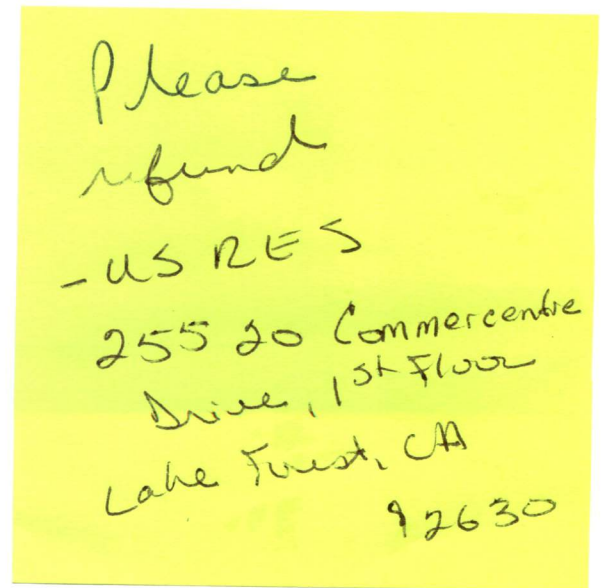 Please
refund
- US RES
25520 Commercentre
Drive, 1st Floor
Lake Forest, CA
92630